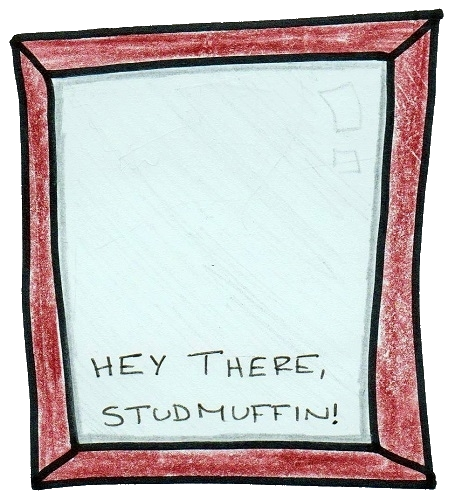 HEY THERE,
STUDMUFFIN!